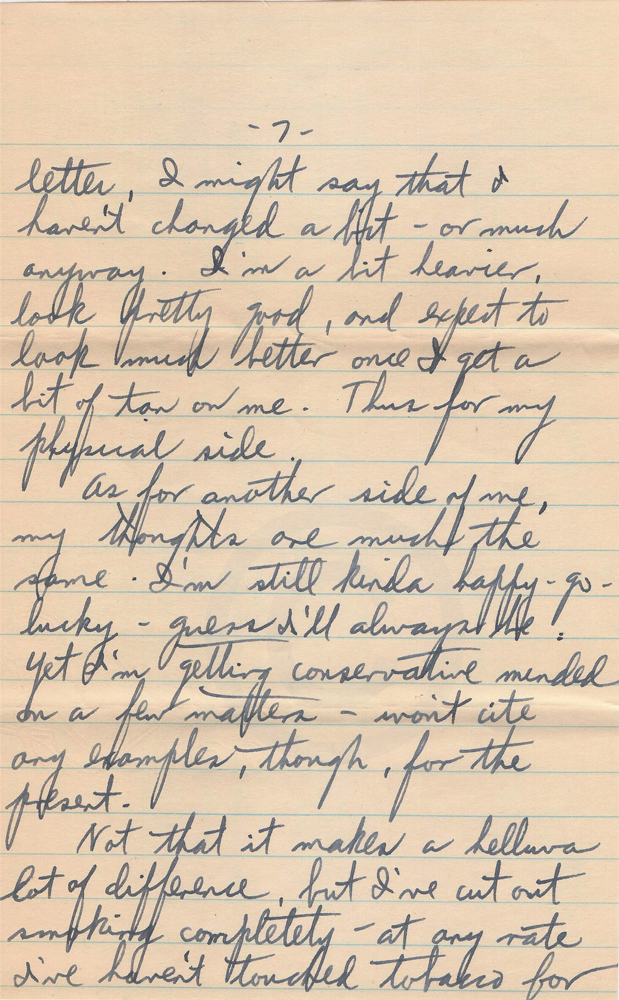 - 7 -
letter, I might say that I
haven't changed a bit - or much
anyway. I'm a bit heavier,
look pretty good, and expect to
look much better once I get a
bit of tan on me. Thus for my
physical side.
As for another side of me,
my thoughts are much the
same. I'm still kinda happy-go-
lucky - guess I'll always be!
Yet I'm getting conservative minded
on a few matters - won't cite
any examples, though, for the
present.
Not that it makes a helluva
lot of difference, but I've cut out
smoking completely - at any rate
I've haven't touched tobacco for